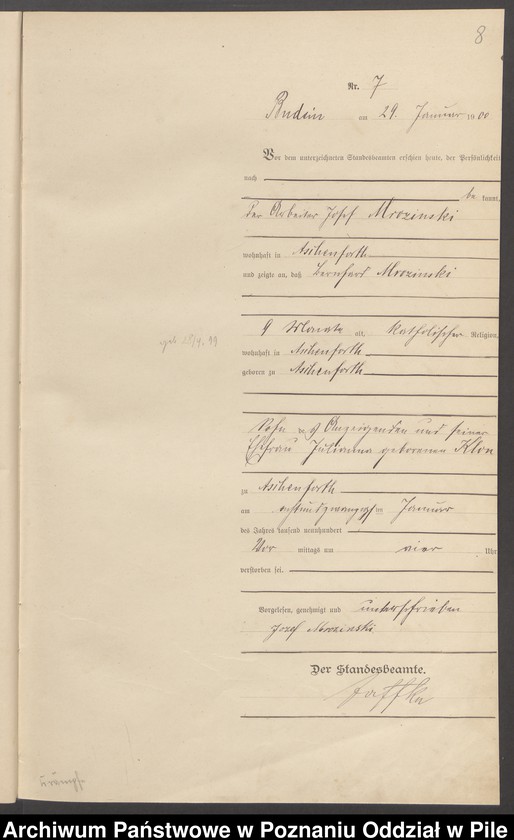 8
Nr. 7
am 29. Januar 1900.
Vor dem unterzeichneten Standesbeamten erschien heute, der Persönlichkeit
nach
be kannt,
der Arbeiter Josef Mrozinski
wohnhaft in Aschenforth
und zeigte an, daß Bernhard Mrozinski
9 Monate alt, katholischer Religion,
geb 25/4. 99
wohnhaft in Aschenforth
geboren zu Aschenforth
Sohn des Anzeigenden und seiner
Ehefrau Julianna geborenen Klon
zu Aschenforth
am achtundzwanzigsten Januar
des Jahres tausend neunhundert
Vor mittags um vier Uhr
verstorben sei.
Vorgelesen, genehmigt und unterschrieben
Jozef Mrozinski
Der Standesbeamte.
Jaffke
Krämpfe
Archiwum Państwowe w Poznaniu Oddział w Pile